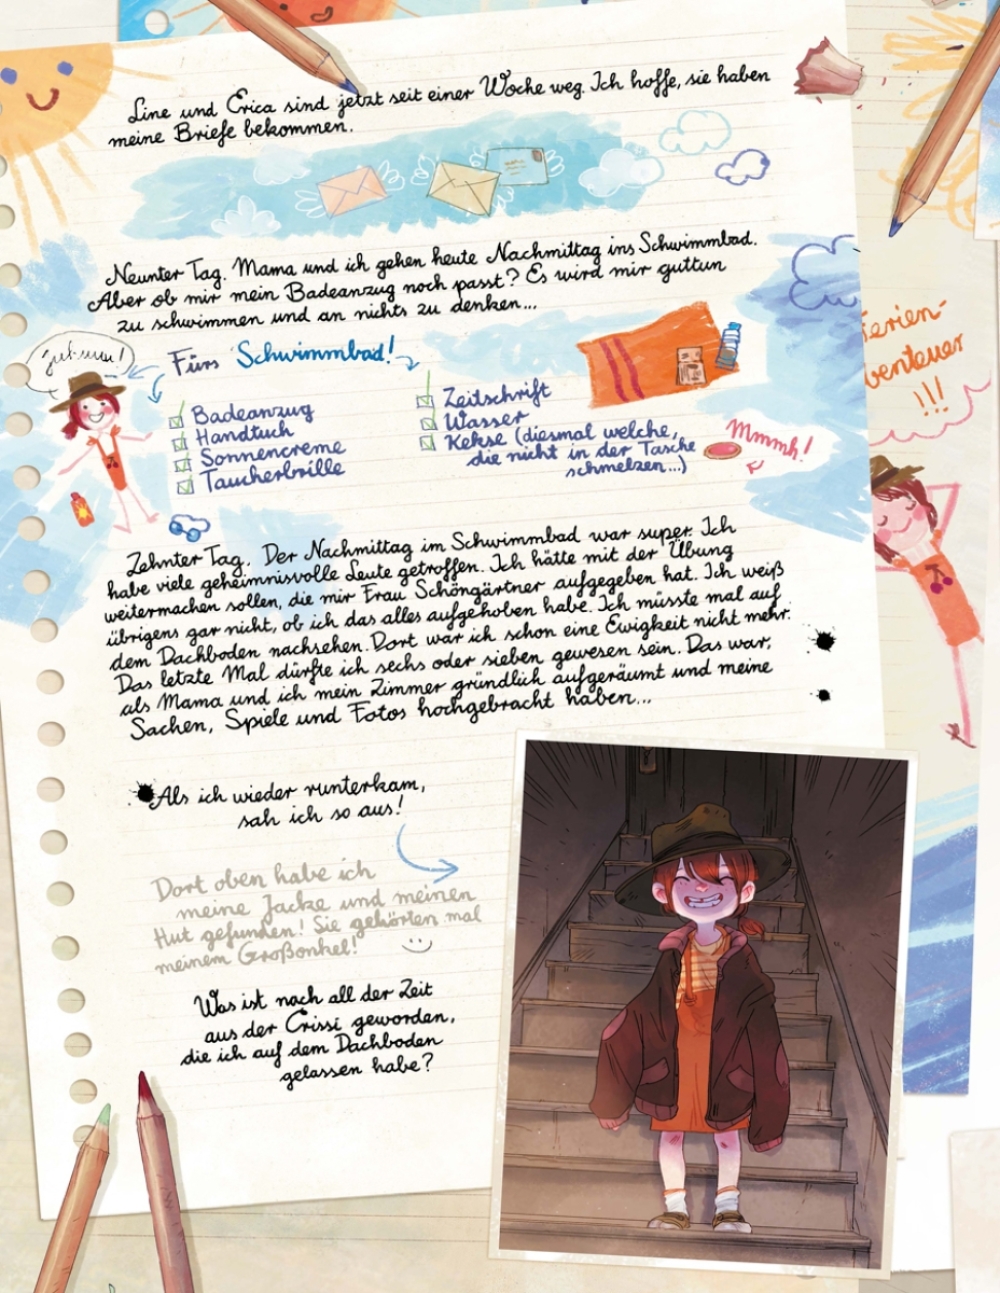 Line und Erica sind jetzt seit einer Woche weg. Ich hoffe, sie haben
meine Briefe bekommen.
Neunter Tag. Mama und ich gehen heute Nachmittag ins Schwimmbad.
Aber ob mir mein Badeanzug noch passt? Es wird mir guttun
zu schwimmen und an nichts zu denken...
Fürs Schwimmbad!
Badeanzug
Handtuch
Sonnencreme
Taucherbrille
Zeitschrift
Wasser
Kekse (diesmal welche,
die nicht in der Tasche
schmelzen...)
Mmmh!
Ferien-
abenteuer
!!!
Zehnter Tag. Der Nachmittag im Schwimmbad war super. Ich
habe viele geheimnisvolle Leute getroffen. Ich hätte mit der Übung
weitermachen sollen, die mir Frau Schöngärtner aufgegeben hat. Ich weiß
übrigens gar nicht, ob ich das alles aufgehoben habe. Ich müsste mal auf
dem Dachboden nachsehen. Dort war ich schon eine Ewigkeit nicht mehr.
Das letzte Mal dürfte ich sechs oder sieben gewesen sein. Das war,
als Mama und ich mein Zimmer gründlich aufgeräumt und meine
Sachen, Spiele und Fotos hochgebracht haben...
Als ich wieder runterkam,
sah ich so aus!
Dort oben habe ich
meine Jacke und meinen
Hut gefunden! Sie gehörten mal
meinem Großonkel!
Was ist nach all der Zeit
aus der Crissi geworden,
die ich auf dem Dachboden
gelassen habe?